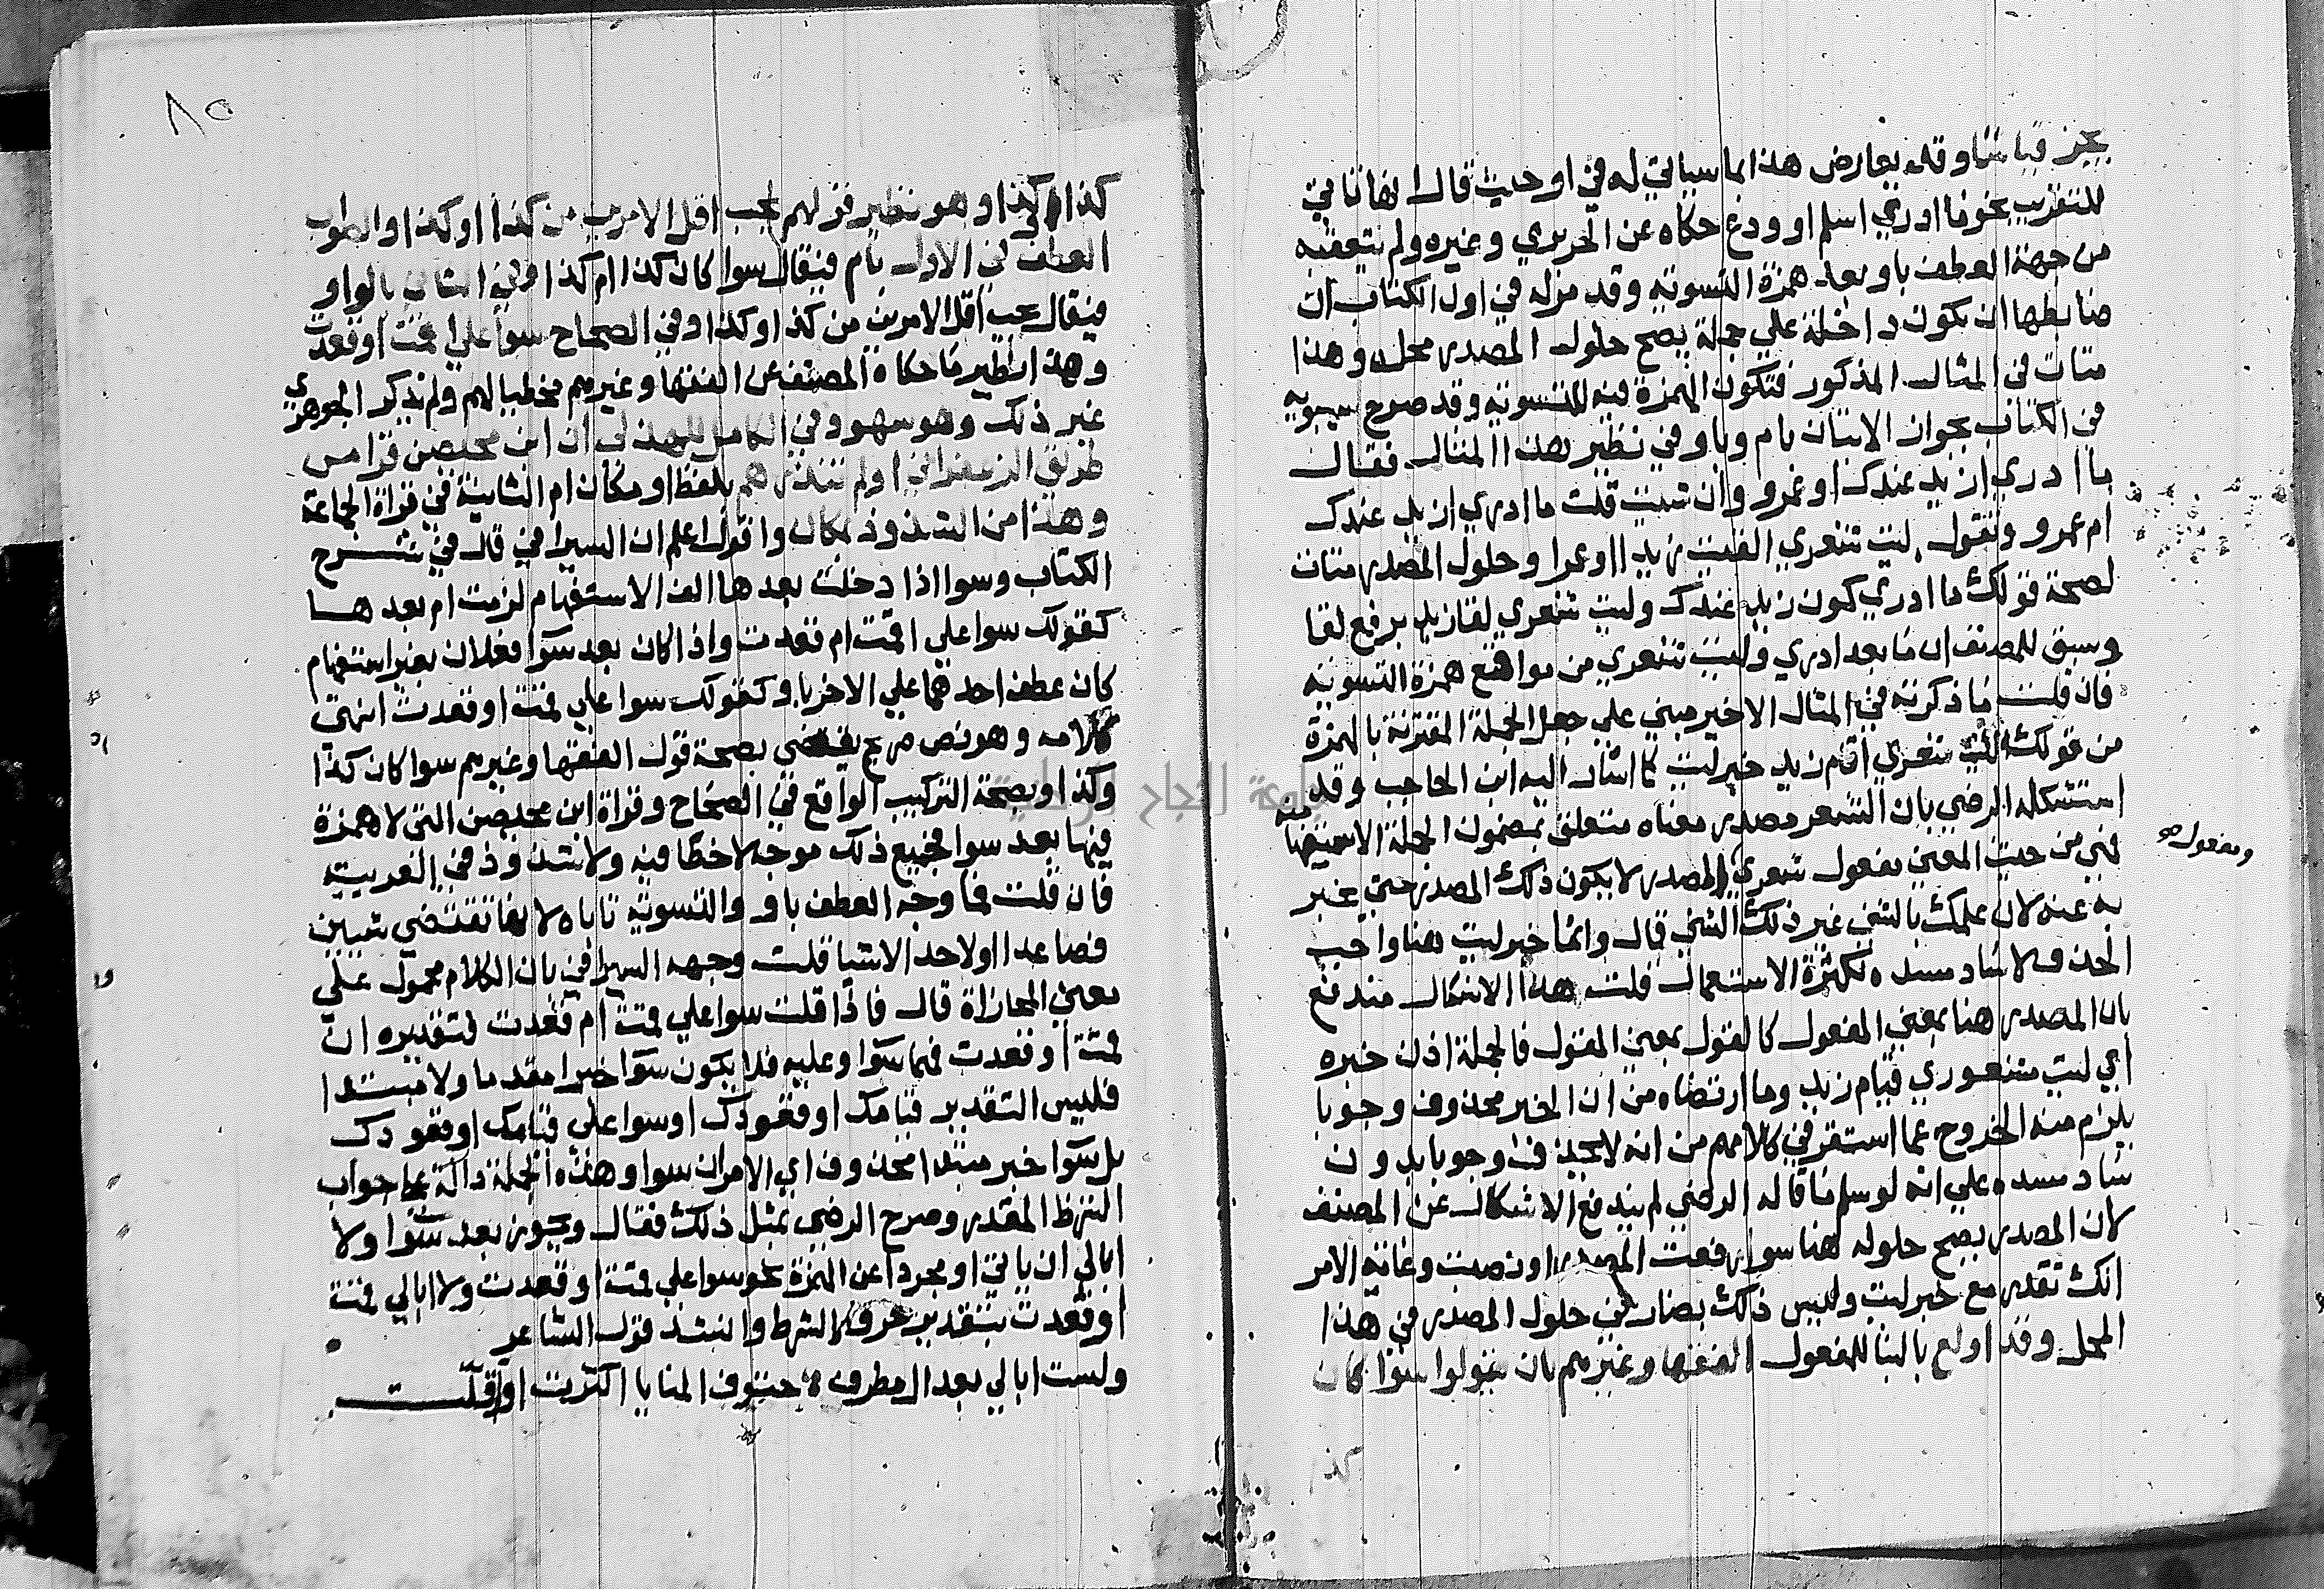 يجز قياسا وقد يعارض هذا بما سياتي له في او حيث قال انها تاتي
للتقريب نحو ما ادري اسلم او ودع حكاه عن الحريري وغيره ولم يتعقبه
من جهة العطف باو بعد همزة التسوية وقد مر له في اول الكتاب ان
ضابطها ان تكون داخلة علي جملة يصح حلول المصدر محلها وهذا
متات في المثال المذكور فتكون الهمزة فيه للتسوية وقد صرح سيبويه
في الكتاب بجواز الاتيان بام وباو في نظير هذا المثال فقال
ما ادري ازيد عندك او عمرو وان شيت قلت ما ادري ازيد عندك
ام عمرو وتقول ليت شعري القيت زيدا او عمرا وحلول المصدر متات
لصحة قولك ما ادري كون زيد عندك وليت شعري لقا زيد برفع لقا
وسبق للمصنف ان ما بعد ادري وليت شعري من مواقع همزة التسوية
فان قلت ما ذكرته في المثال الاخير مبني علي جعل الجملة المقترنة بالهمزة
من قولك ليت شعري اقام زيد خبر ليت كما اشار اليه ابن الحاجب وقد
استشكله الرضي بان الشعر مصدر معناه متعلق بمضمون الجملة الاستفهامية
فهي من حيث المعني مفعول شعري المصدر لا يكون ذلك المصدر حتي يخبر
ومفعول
به عنه لان علمك بالشي غير ذلك الشي قال وانما خبر ليت هنا واجب
الحذف لا ساد مسده لكثرة الاستعمال قلت هذا الاشكال مندفع
بان المصدر هنا بمعني المفعول كالقول بمعني المقول فالجملة اذن خبره
اي ليت مشعوري قيام زيد وما ارتضاه من ان الخبر محذوف وجوبا
يلزم منه الخروج عما استقر في كلامهم من انه لا يحذف وجوبا بدون
ساد مسده علي انه لو سلم ما قاله الرضي لم يندفع الاشكال عن المصنف
لان المصدر يصح حلوله هنا سوا رفعت المصدر او نصبت وغاية الامر
انك تقدر مع خبر ليت وليس ذلك بضار في حلول المصدر في هذا
المحل وقد اولع بالبنا للمفعول الفقها وغيرهم بان يقولوا سوا كان
كذا
٨٥
كذا او كذا وهو نظير قولهم يجب اقل الامرين من كذا او كذا والصواب
العطف في الاول بام فيقال سوا كان كذا ام كذا وفي الثاني بالواو
فيقال يجب اقل الامرين من كذا وكذا وفي الصحاح سوا علي قمت او قعدت
وهذا نظير ما حكاه المصنف عن الفقها وغيرهم مخطيا لهم ولم يذكر الجوهري
غير ذلك وهو سهو وفي الكامل للهذلي ان ابن محيصن قرا من
طريق الزعفراني او لم تنذرهم بلفظ او مكان ام الثابتة في قراة الجماعة
وهذا من الشذوذ بمكان واقول اعلم ان السيرافي قال في شرح
الكتاب وسوا اذا دخلت بعدها الف الاستفهام لزمت ام بعدها
كقولك سوا علي اقمت ام قعدت واذا كان بعد سوا فعلان بغير استفهام
كان عطف احدهما علي الاخر باو كقولك سوا علي قمت او قعدت انتهي
كلامه وهو نص صريح يقضي بصحة قول الفقها وغيرهم سوا كان كذا
وكذا وبصحة التركيب الواقع في الصحاح وقراة ابن محيصن التي لا همزة
فيها بعد سوا فجميع ذلك موجه لا خطا فيه ولا شذوذ في العربية
فان قلت فما وجه العطف باو والتسوية تاباه لانها تقتضي شيين
فصاعدا او لاحد الاشيا قلت وجهه السيرافي بان الكلام محمول علي
معني المجازاة قال فاذا قلت سوا علي قمت ام قعدت فتقديره ان
قمت او قعدت فهما سوا وعليه فلا يكون سوا خبرا مقدما ولا مبتدا
فليس التقدير قيامك او قعودك او سوا علي قيامك او قعودك
بل سوا خبر مبتدا محذوف اي الامران سوا وهذه الجملة دالة علي جواب
الشرط المقدر وصرح الرضي بمثل ذلك فقال ويجوز بعد سوا ولا
ابالي ان ياتي او مجردا عن الهمزة نحو سوا علي قمت او قعدت ولا ابالي قمت
او قعدت بتقدير حرف الشرط وانشد قول الشاعر
ولست ابالي بعد ال مطرف حتوف المنايا اكثرت او اقلت